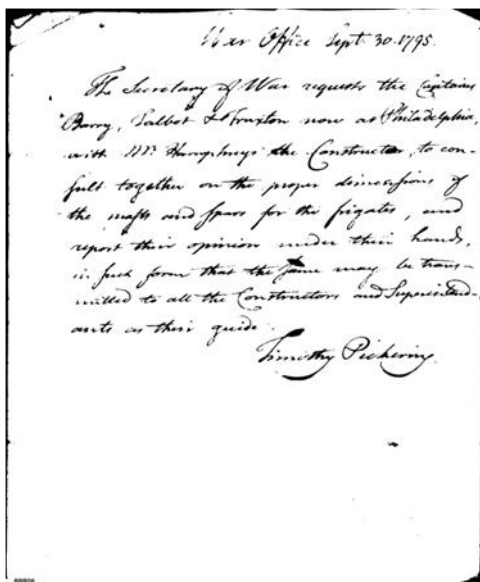 War Office Sept. 30. 1795.
The Secretary of War requests the Captains
Barry, Talbot & Truxton now at Philadelphia,
with Mr. Humphreys the Constructor, to con-
sult together on the proper dimensions of
the masts and spars for the frigates, and
report their opinion under their hands,
in such form that the same may be trans-
mitted to all the Constructors and Superintend-
ants as their guide.
Timothy Pickering